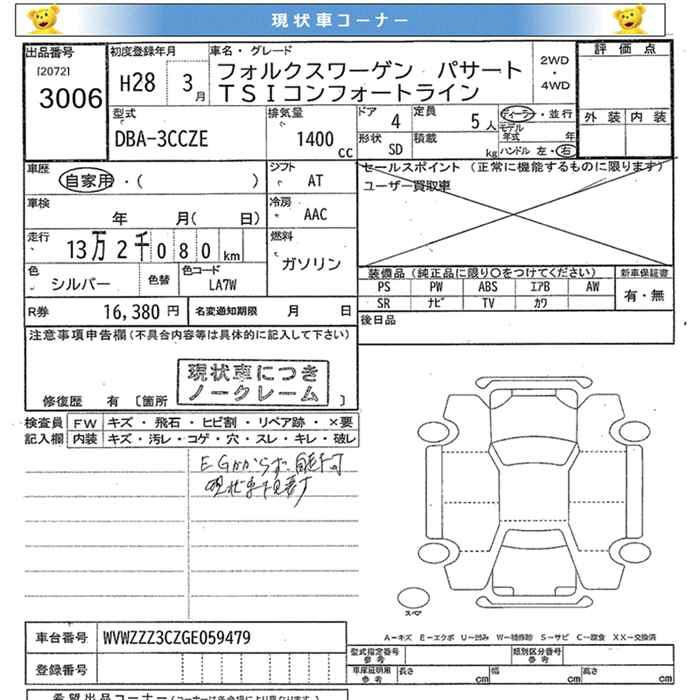 現状車コーナー
出品番号
[2072]
3006
初度登録年月
H28 3月
車名・グレード
フォルクスワーゲン パサート
TSIコンフォートライン
2WD
・
4WD
評価点
外装 内装
型式
DBA-3CCZE
排気量
1400 cc
ドア 4
定員 5人
形状 SD
積載 kg
ディーラー・並行
モデル年式 年
ハンドル 左・右
車歴
自家用・( )
シフト
AT
セールスポイント(正常に機能するものに限ります)
ユーザー買取車
車検
年 月( 日)
冷房
AAC
走行
13万2千080km
燃料
ガソリン
色
シルバー
色替
色コード
LA7W
装備品(純正品に限り○をつけてください)
新車保証書
PS PW ABS エアB AW
SR ナビ TV カワ
有・無
R券 16,380円
名変通知期限 月 日
後日品
注意事項申告欄(不具合内容等は具体的に記入して下さい)
現状車につき
ノークレーム
修復歴 有 [箇所 ]
検査員
記入欄
FW キズ・飛石・ヒビ割・リペア跡・×要
内装 キズ・汚レ・コゲ・穴・スレ・キレ・破レ
EGかからず
現状車
スペア
A-キズ E-エクボ U-凹み W-補修跡 S-サビ C-腐食 XX-交換済
車台番号 WVWZZZ3CZGE059479
登録番号
型式指定番号
参考
類別区分番号
参考
車庫証明用
参考
長さ cm
幅 cm
高さ cm
希望出品コーナー